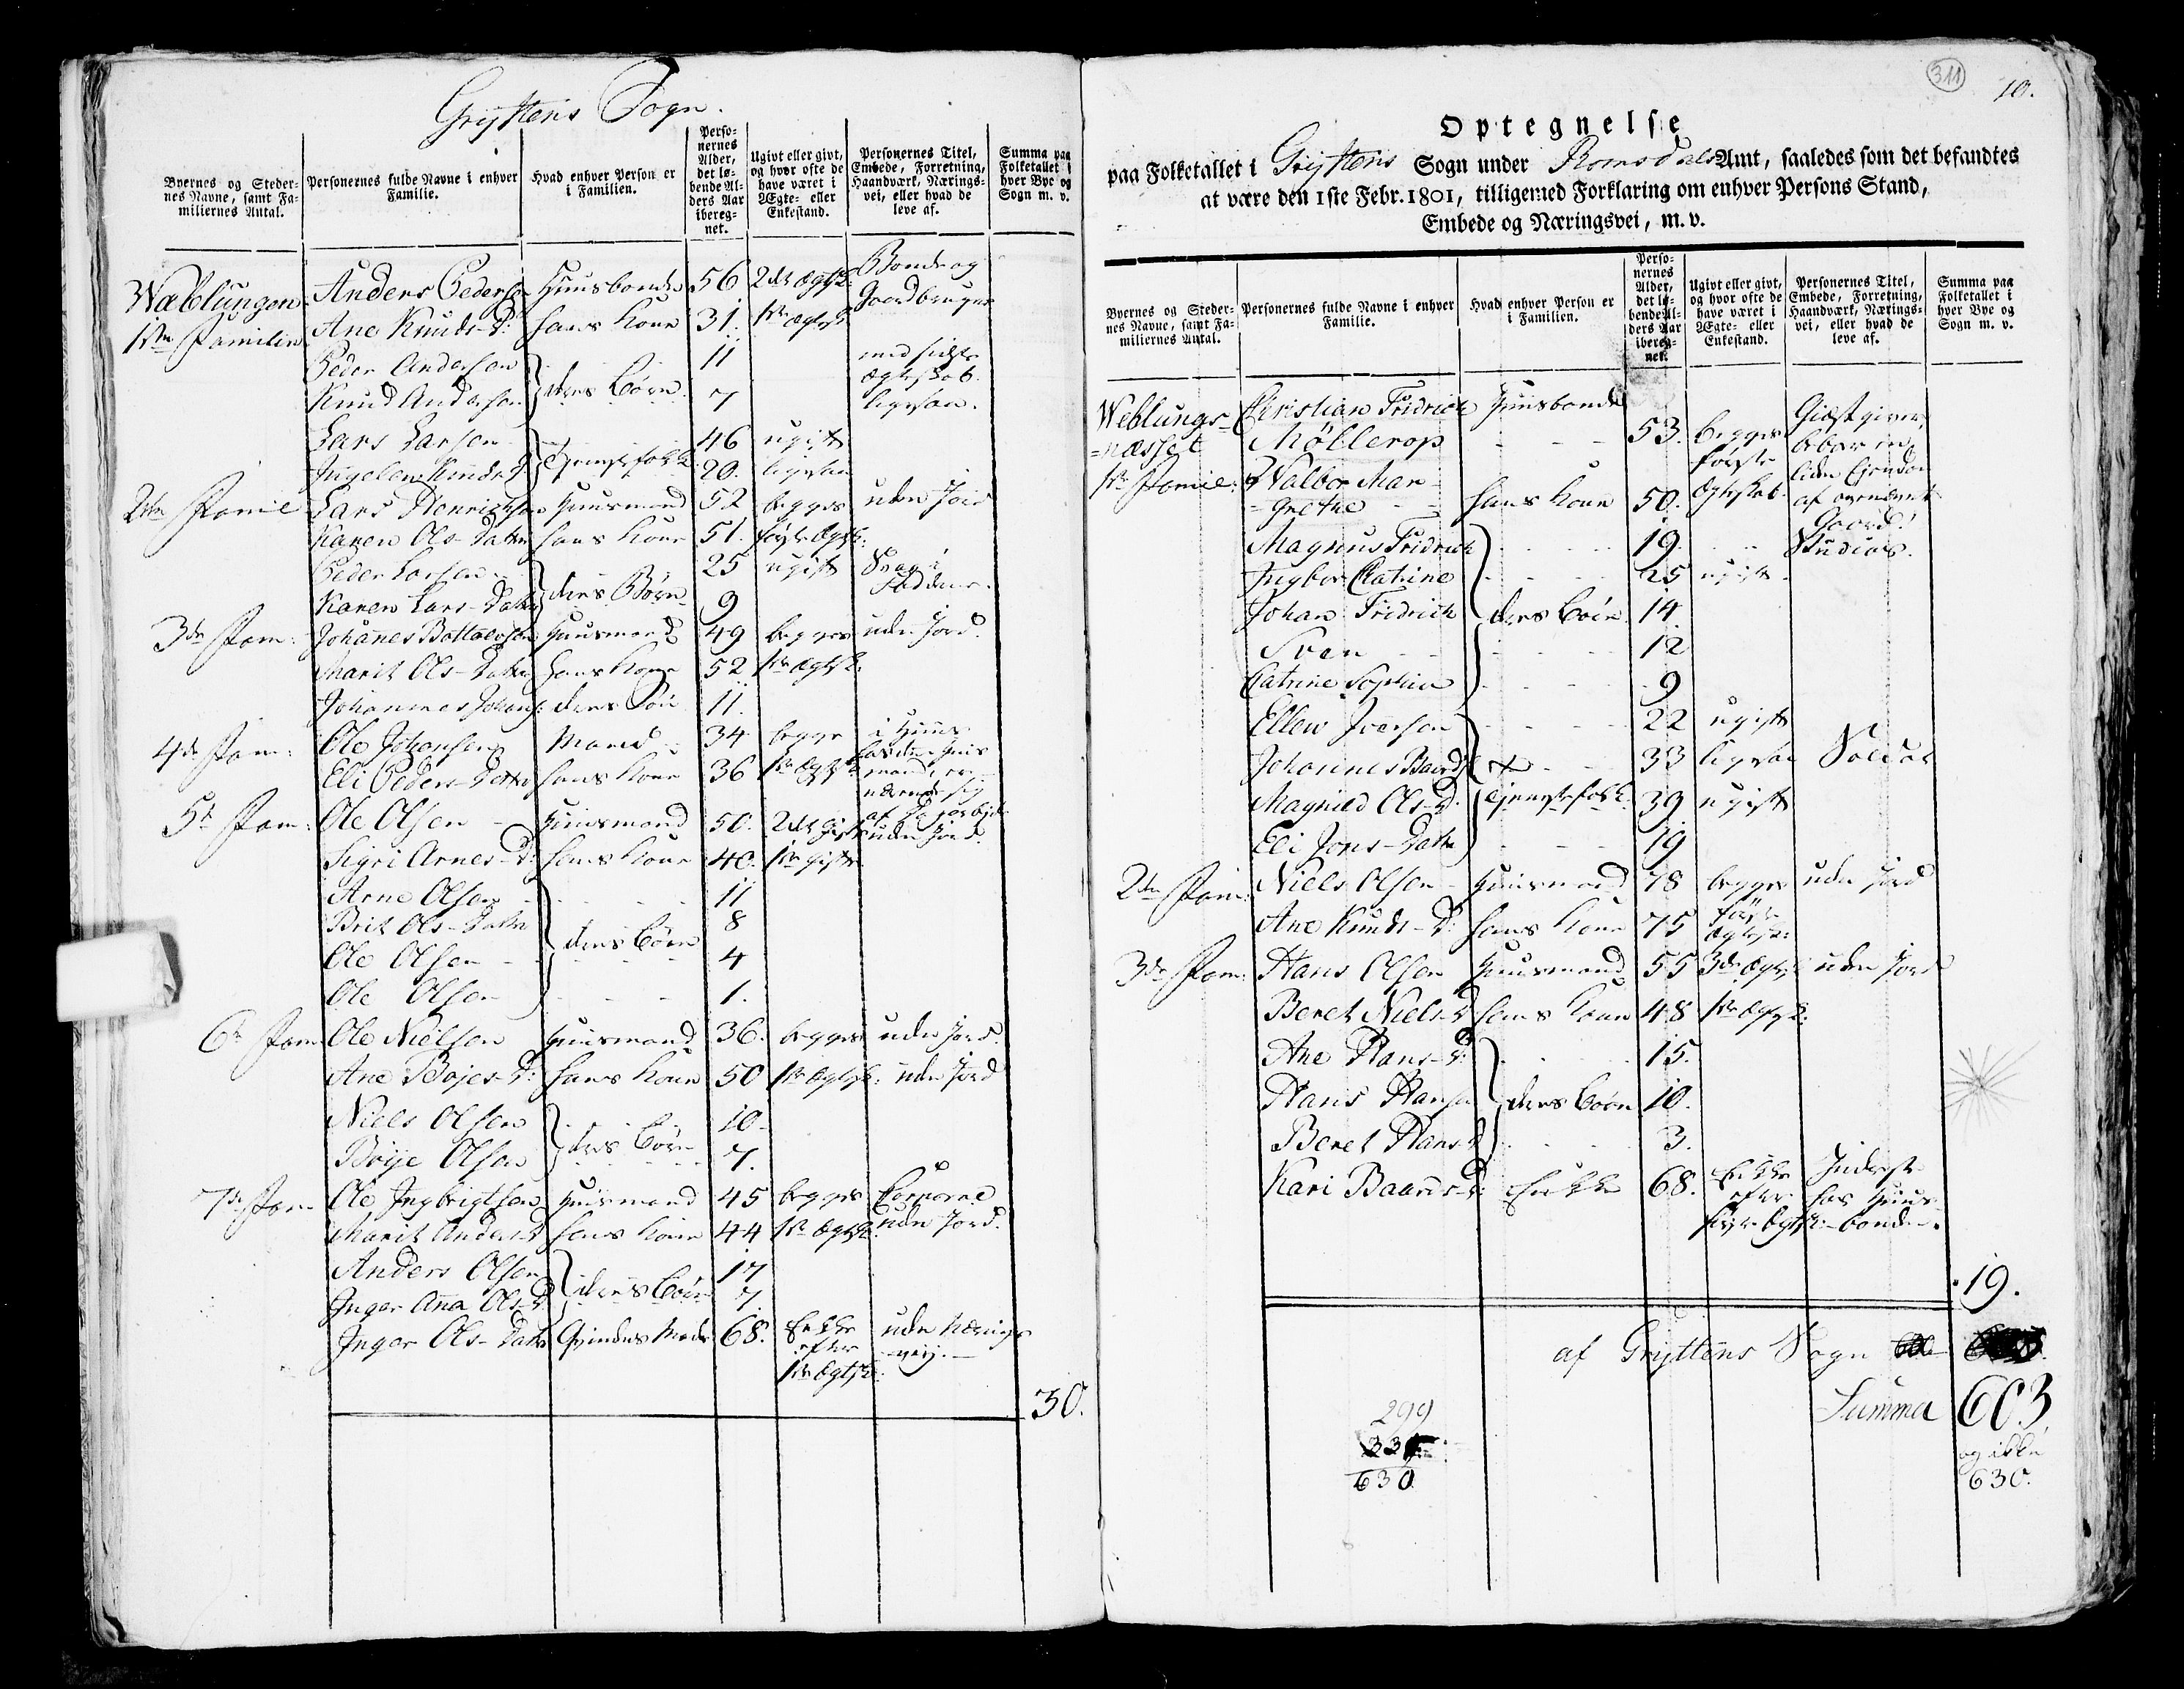 Gryttens Sogn.
Byernes og Stedernes Navne, samt Familiernes Antal.
Personernes fulde Navne i enhver Familie.
Hvad enhver Person er i Familien.
Personernes Alder, det løbende Alders Aar iberegnet.
Ugivt eller givt, og hvor ofte de have været i Ægte- eller Enkestand.
Personernes Titel, Embede, Forretning, Haandværk, Næringsvei, eller hvad de leve af.
Summa paa Folketallet i hver Bye og Sogn m. v.
Wæblungen Anders Peders: Huusbonde 56 2det Ægtsk: Bonde og Gaardbruger
1ste Familie Ane Knuds-D: hans Kone 31. 1ste Ægtsk
Peder Andersen 11 med sidste Ægteskab.
Knud Andersen } deres Børn. 7 ligesaa.
Lars Larsen 46 ugift
Ingeleiv Knuds D } Tjenestefolk 20. ligesaa
2den Famil Lars Henrichsen Huusmand 52 begges uden Jord
Karen Ols-Datter hans Kone 51. første Ægtsk:
Peder Larsen 25 ugift
Karen Lars-Datter } deres Børn 9
3de Fam: Johannes Bottolvsen Huusmand 49 begges uden Jord.
Marit Ols-Datter hans Kone 52 1ste Ægtsk:
Johannes Johans: deres Søn 11.
4de Fam: Ole Johansen Mand 34 begge i Huus
Eli Peders-Datter hans Kone 36 1ste Ægtsk
5te Fam: Ole Olsen Huusmand 50. 2det Gift uden Jord.
Sigri Arnes-D: hans Kone 40. 1ste Gift
Arne Olsen 11
Brit Ols-Datter 8
Ole Olsen } deres Børn 4
Ole Olsen 1.
6te Fam Ole Nielsen Huusmand 36. begges uden Jord.
Ane Bojes-D: hans Kone 50 1ste Ægtsk: uden Jord
Niels Olsen 10.
Boije Olsen } deres Børn 7.
7de Fam Ole Ingbrigtsen Huusmand 45 begges
Marit Anders-D hans Kone 44 1ste Ægtsk: uden Jord.
Anders Olsen 17
Inger Ana Ols-D. } deres Børn 7.
Inger Ols-Datter Qvindens Moder 68. Enke efter 1ste Ægtsk: uden Næringsveij.
30.
311
10.
Optegnelse
paa Folketallet i Gryttens Sogn under Romsdals Amt, saaledes som det befandtes
at være den 1ste Febr. 1801, tilligemed Forklaring om enhver Persons Stand,
Embede og Næringsvei, m. v.
Byernes og Stedernes Navne, samt Familiernes Antal.
Personernes fulde Navne i enhver Familie.
Hvad enhver Person er i Familien.
Personernes Alder, det løbende Alders Aar iberegnet.
Ugivt eller givt, og hvor ofte de have været i Ægte- eller Enkestand.
Personernes Titel, Embede, Forretning, Haandværk, Næringsvei, eller hvad de leve af.
Summa paa Folketallet i hver Bye og Sogn m. v.
Weblungs- Christian Fridrich Huusbonde Giæstgiver,
=næsset Møllerop 53. begges første beboer en liden Eiendom
1ste Famil: Walbor Mar-
-grethe hans Kone 50. Ægteskab. af ovennævnte Gaard.
Magnus Fridrich 19. Studios.
Ingbor Catrine 25 ugift
Johan Fridrich } deres Børn 14
Sven 12
Catrine Sophia 9
Ellen Iversen 22 ugift
Johannes Baards 33 ligesaa Soldat
Magnild Ols-D. } Tjenestefolk. 39 ugift
Eli Jons-Datter 19
2den Fam: Niels Olsen Huusmand 78 begges uden Jord
Ane Knuds-D: hans Kone 75 første Ægtesk:
3de Fam: Hans Olsen Huusmand 55 3de Ægtsk uden Jord
Beret Niels-D hans Kone 48 1ste Ægtsk:
Ane Hans-D: 15.
Hans Hansen } deres Børn 10.
Beret Hans-D 3.
Kari Baards-D: Enke 68. Enke efter første Ægtsk: Inderst hos Huusbonden.
19.
af Gryttens Sogn
Summa 603
og ikke
630.
299
331
630